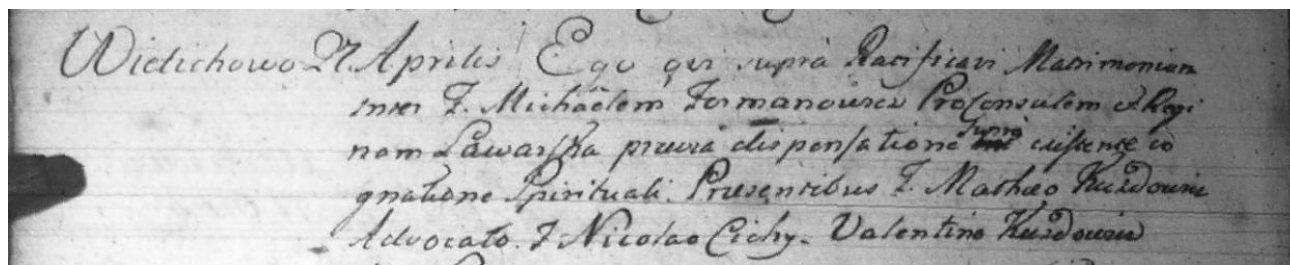 Widuchowo 27 Aprilis Ego qui supra Ratificavi Matrimonium
inter F. Michaëlem Formanowicz Proconsulem & Regi
nam Lawarska prævia dispensatione super existente co
gnatione Spirituali. Præsentibus F. Mathæo Kuzdowicz
Advocato. F Nicolao Cichy. Valentino Kuzdowicz